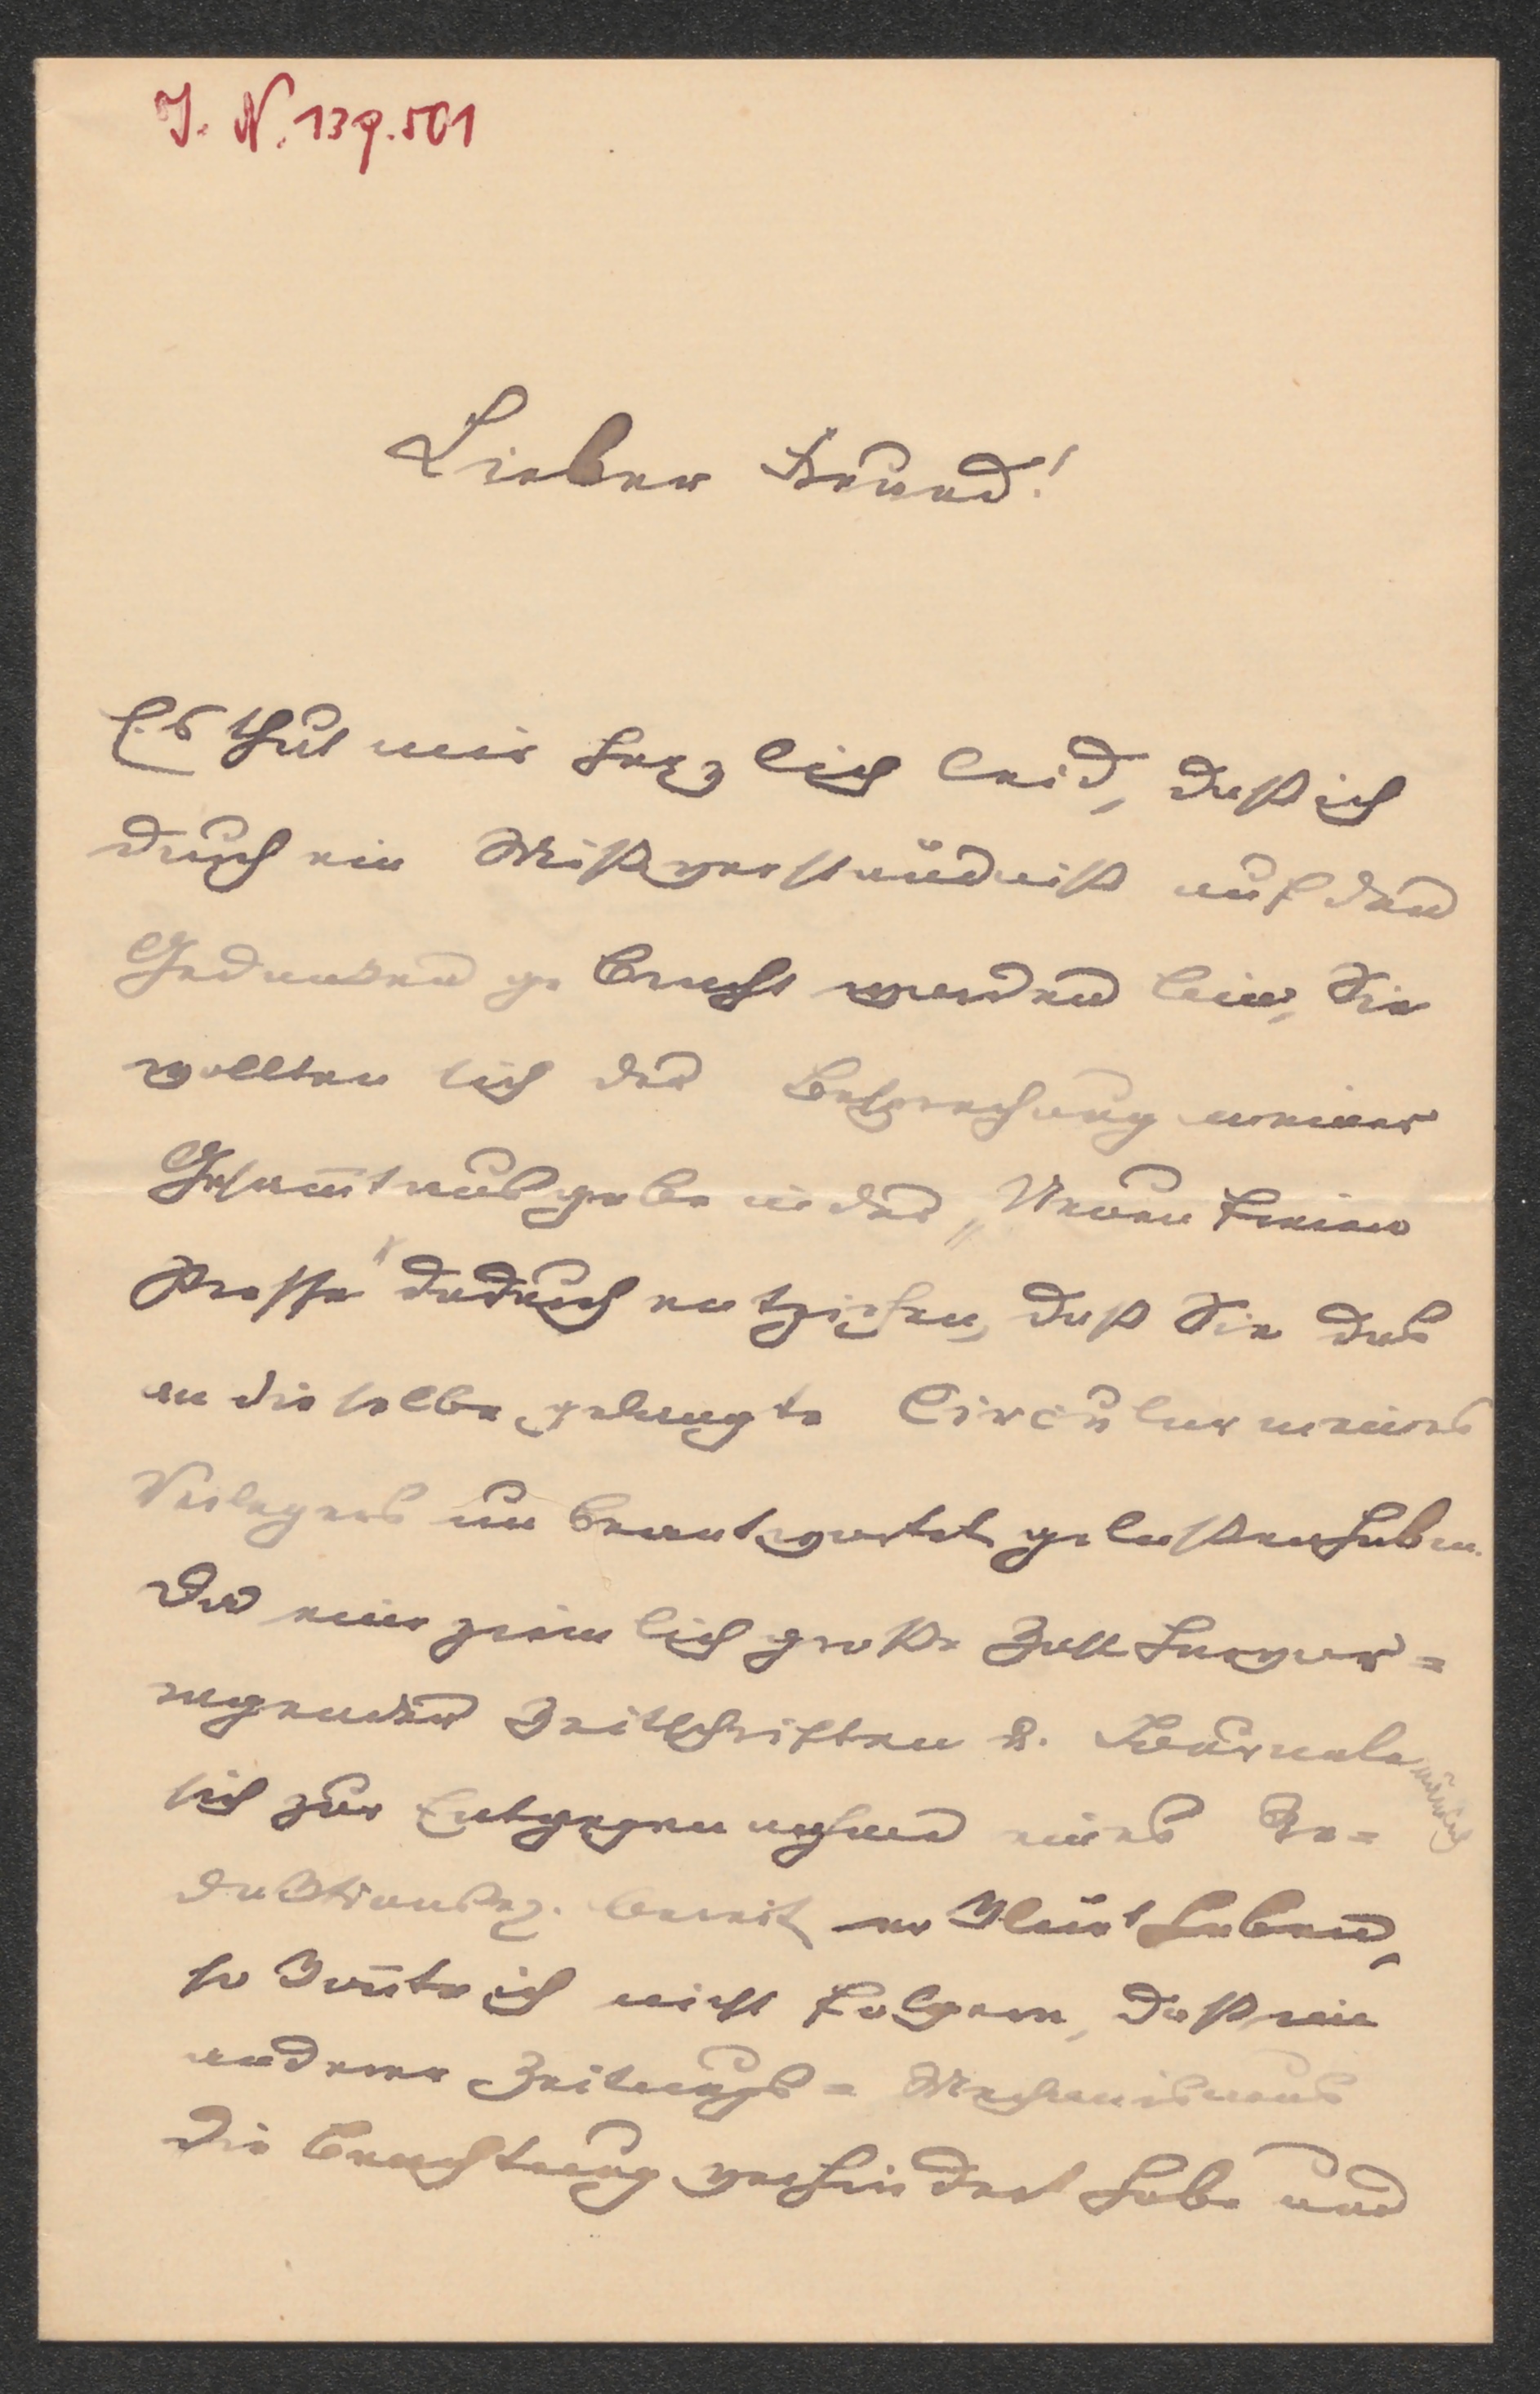 J. N. 139.501
Lieber Freund!
Es thut mir herzlich leid, daß ich
durch ein Mißverständniß auf den
Gedanken gebracht worden bin, Sie
wollten sich der Besprechung meiner
Gesam̄tausgabe in der „Neuen freien
Presse" dadurch entziehen, daß Sie das
an dieselbe gelangte Circular meines
Verlegers unbeantwortet gelaßen haben.
Da eine ziemlich große Zahl hervor=
ragender Zeitschriften u. Journale nämlich
sich zur Entgegennahme eines Re=
daktionsex. bereit erklärt haben,
so kon̄te ich nicht folgern, daß ein
anderer Zeitungs=Mechanismus
die Beachtung verhindert habe und